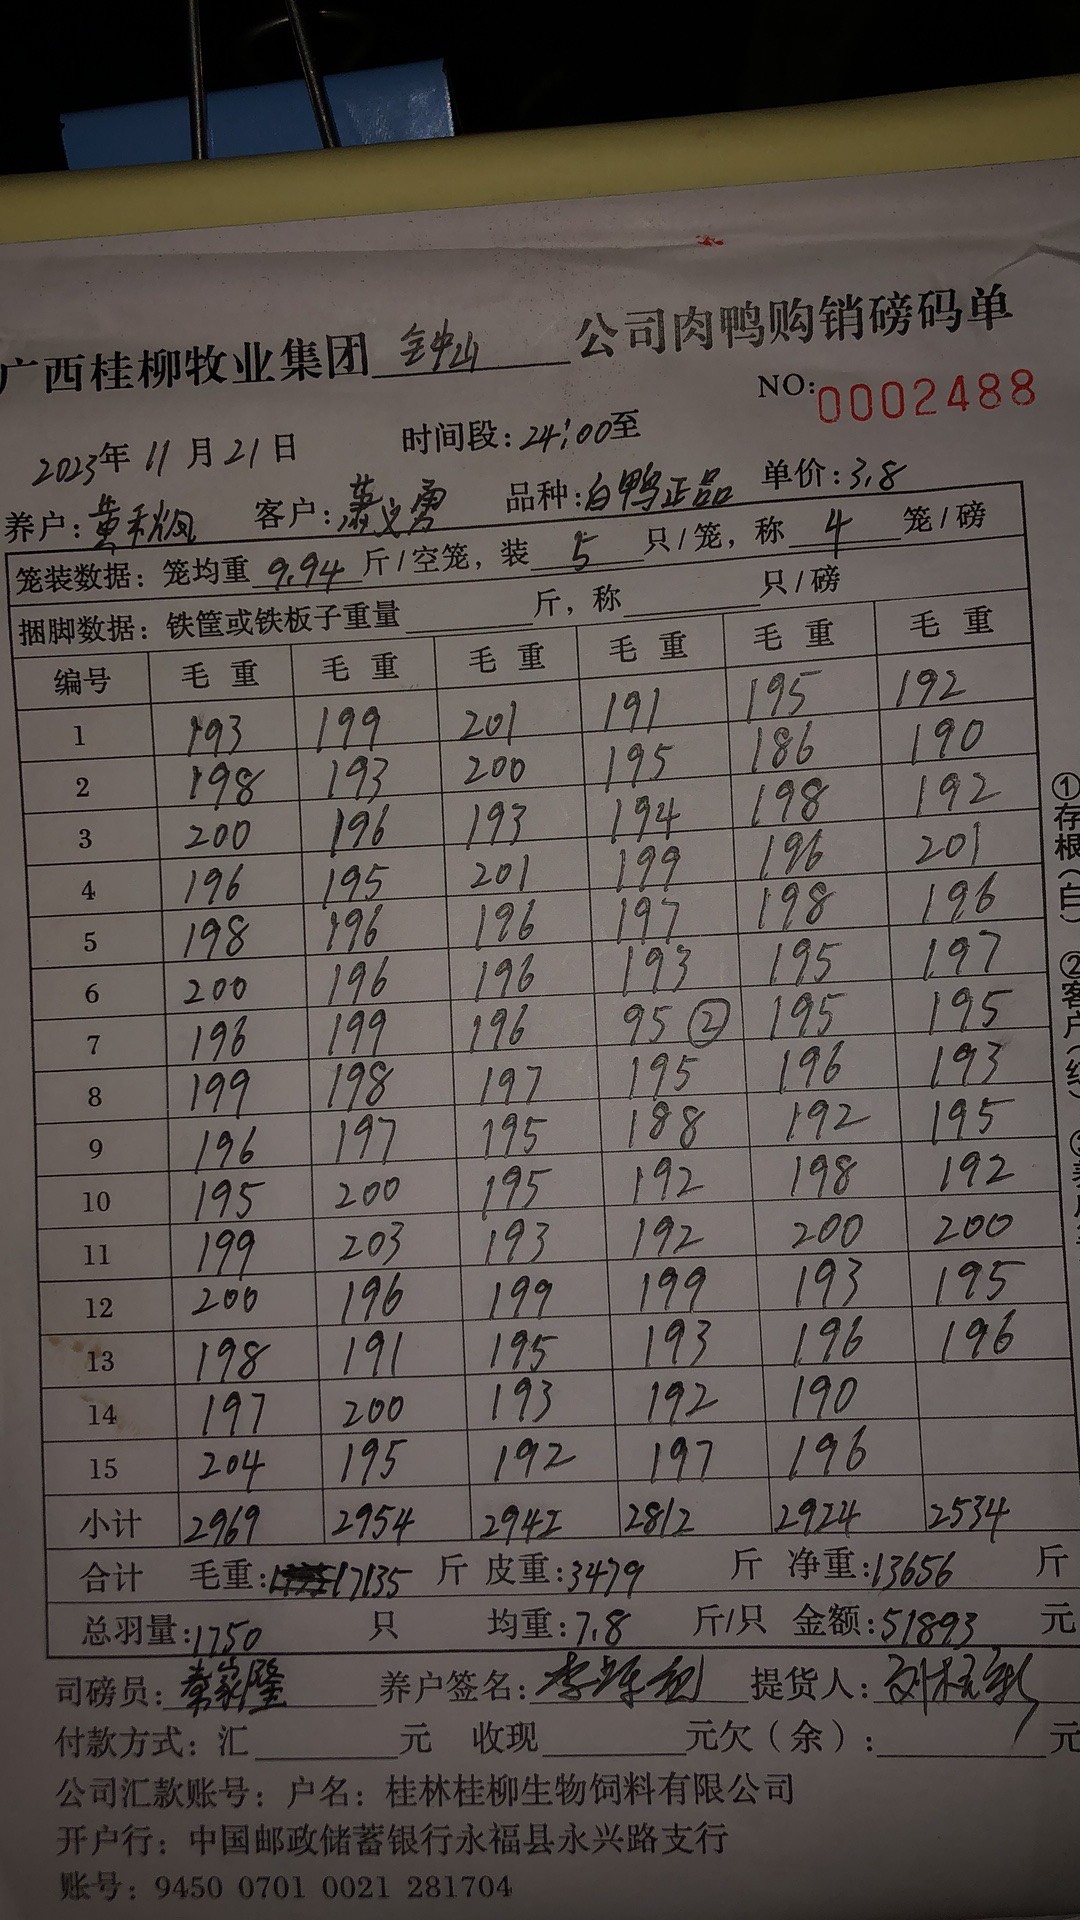 广西桂柳牧业集团 钟山 公司肉鸭购销磅码单
NO:0002488
2023年 11月21日 时间段:24:00至
养户:黄禾枫 客户:萧义勇 品种:白鸭正品 单价:3.8
笼装数据: 笼均重 9.94 斤/空笼, 装 5 只/笼, 称 4 笼/磅
捆脚数据: 铁筐或铁板子重量 斤, 称 只/磅
编号 毛重 毛重 毛重 毛重 毛重 毛重
1 193 199 201 191 195 192
2 198 193 200 195 186 190
3 200 196 193 194 198 192
4 196 195 201 199 196 201
5 198 196 196 197 198 196
6 200 196 196 193 195 197
7 196 199 196 95 ② 195 195
8 199 198 197 195 196 193
9 196 197 195 188 192 195
10 195 200 195 192 198 192
11 199 203 193 192 200 200
12 200 196 199 199 193 195
13 198 191 195 193 196 196
14 197 200 193 192 190
15 204 195 192 197 196
小计 2969 2954 2942 2812 2924 2534
合计 毛重:17135 斤 皮重:3479 斤 净重:13656 斤
总羽量:1750 只 均重:7.8 斤/只 金额:51893 元
司磅员: 养户签名: 提货人:
付款方式: 汇 元 收现 元欠(余): 元
公司汇款账号: 户名: 桂林桂柳生物饲料有限公司
开户行: 中国邮政储蓄银行永福县永兴路支行
账号: 9450 0701 0021 281704
①存根(白) ②客户